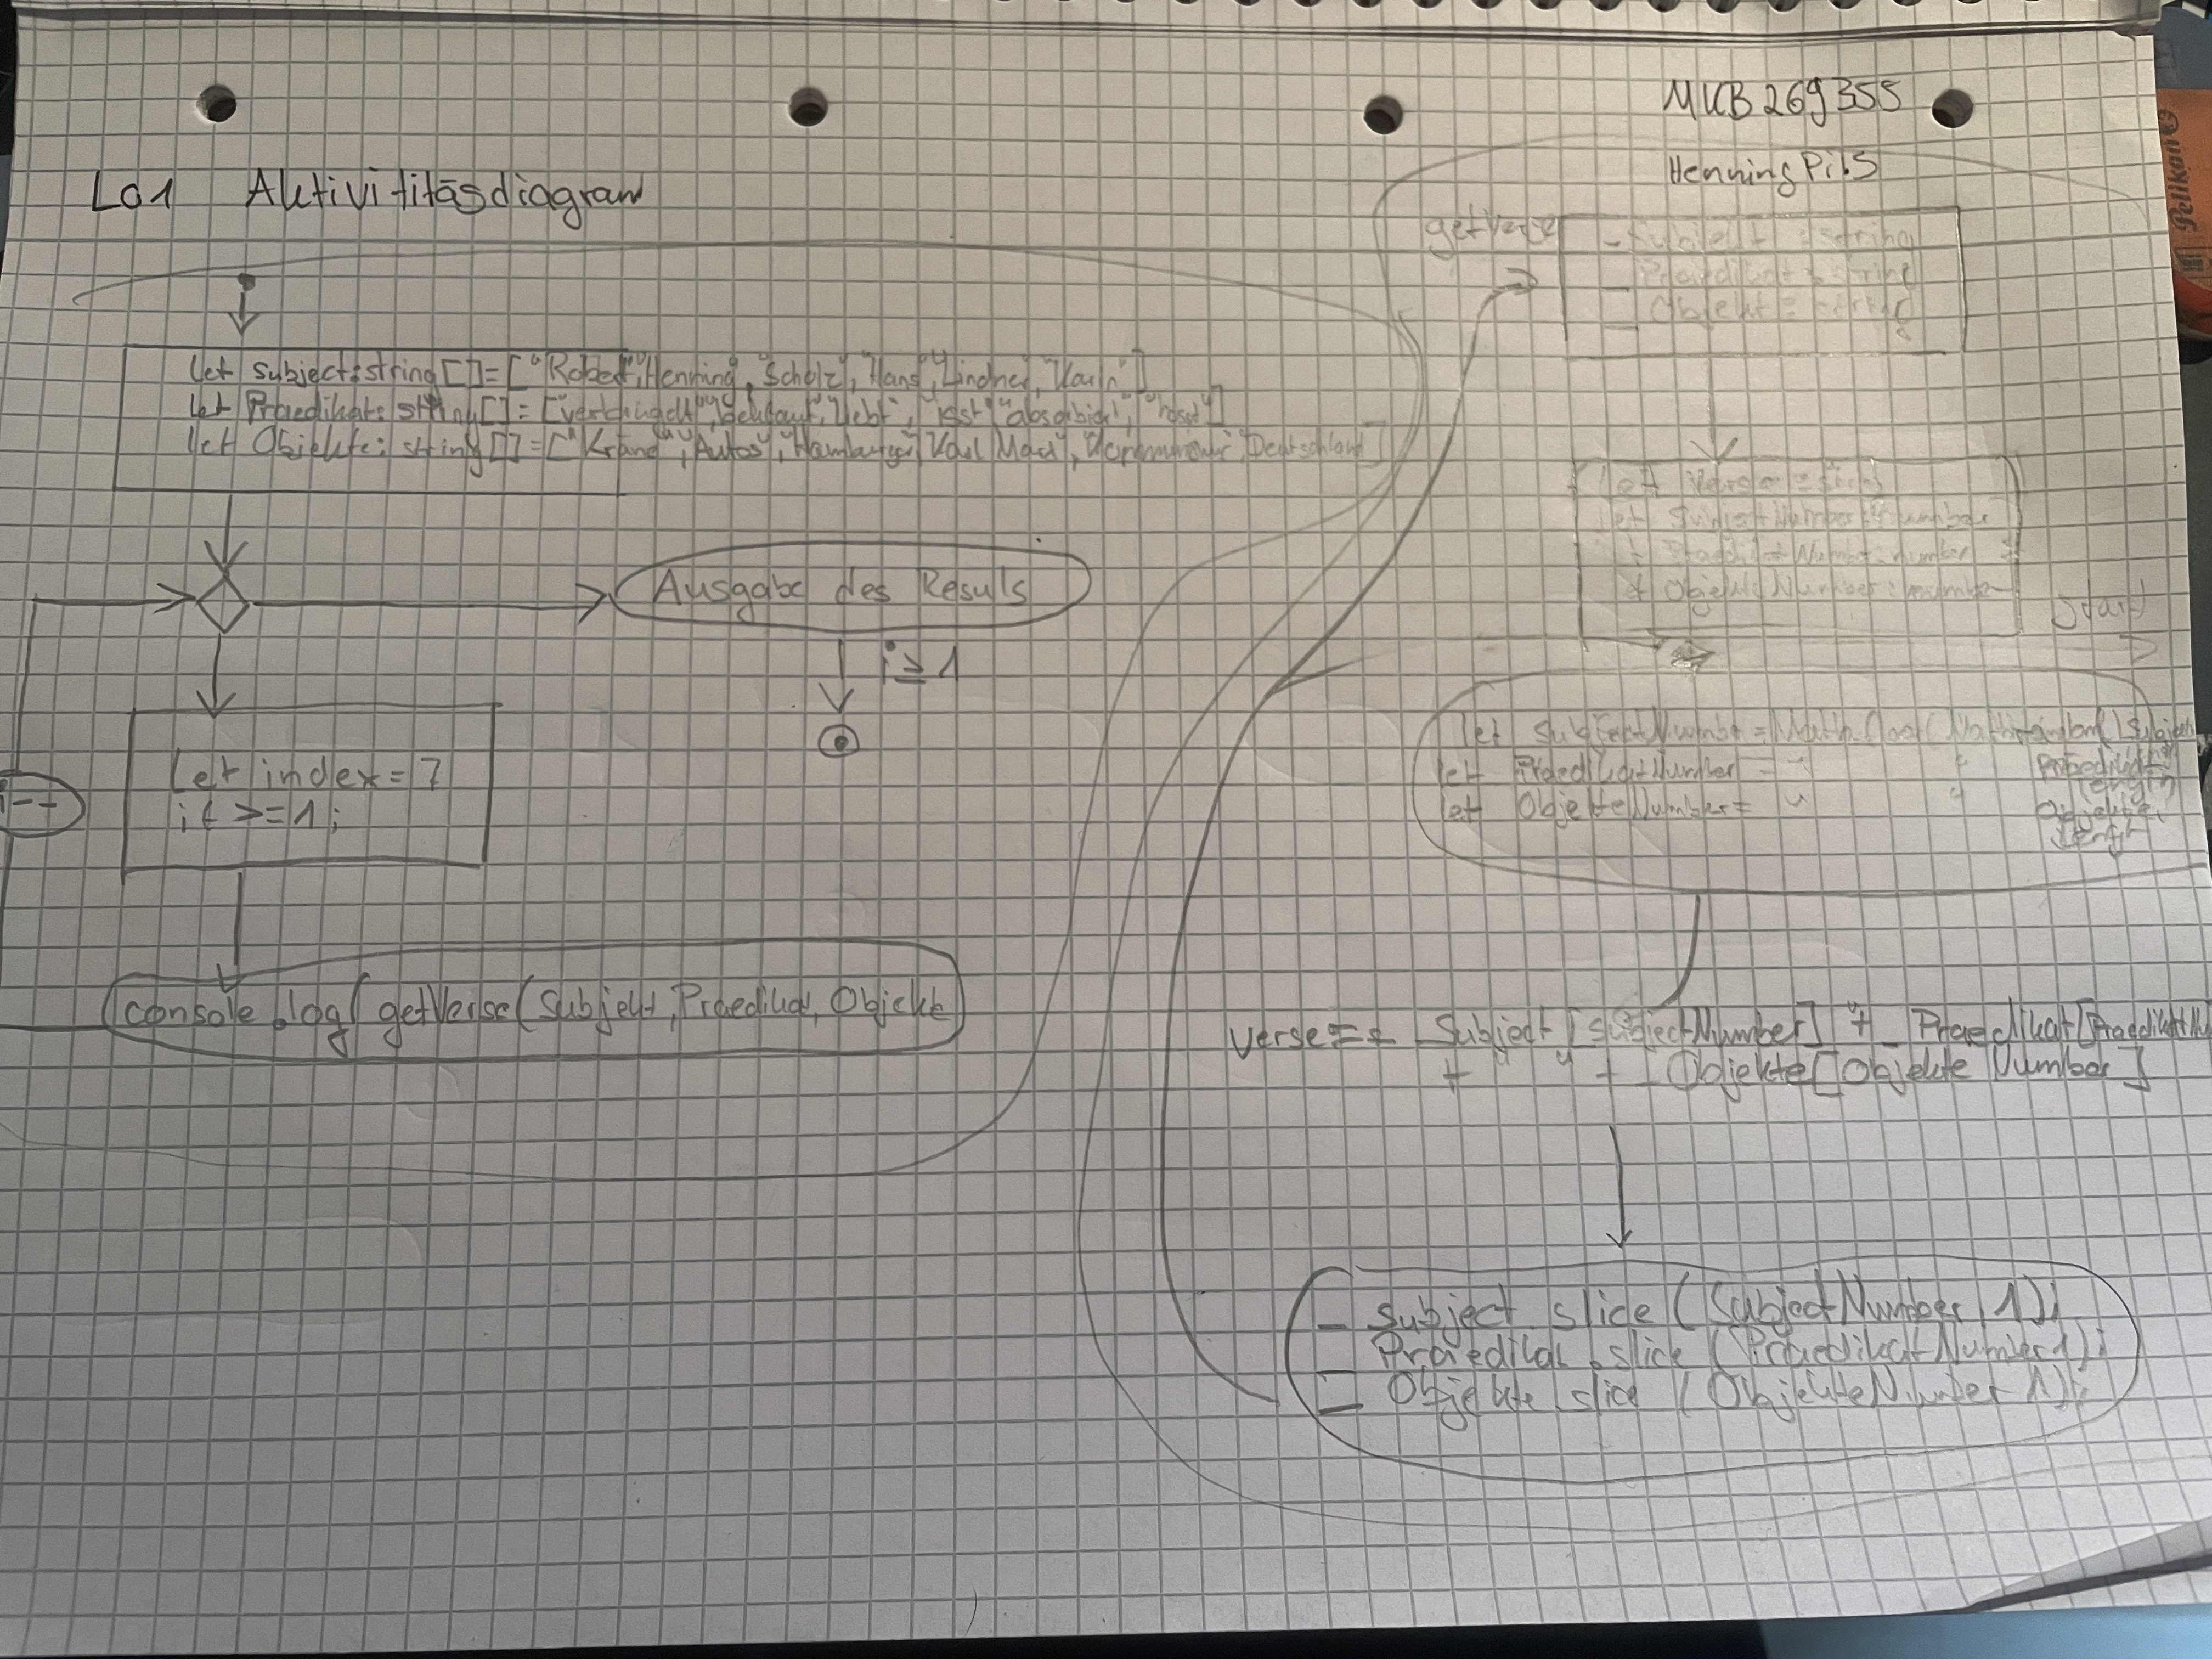 MKB 269355
Henning Pils
L01 Aktivitätsdiagram
let subject:string[]=["Robert","Henning","Scholz","Hans","Lindner","Karin"]
let Praedikat: string[]=[ "liebt", "isst"
let Objekte: string[]=[ "Autos", "Hamburger" "Karl Marx", "Deutschland"]
Ausgabe des Resuls
i≥1
let index=7
if >=1;
i--
console.log(getVerse(Subjekt,Praedikat,Objekte
getVerse
_Subjekt:string
_Praedikat:string
_Objekte:string
let Verse:string
let SubjectNumber:number
PraedikatNumber:number
ObjekteNumber:number
Start
let SubjectNumber=Math.floor(Math.random()
let PraedikatNumber = " " Praedikat.length
let ObjekteNumber= " " Objekte.length
Verse== _Subject[SubjectNumber] + _Praedikat[
+ " " + _Objekte[ObjekteNumber]
_subject.slice(SubjectNumber,1);
_Praedikat.slice(PraedikatNumber 1);
_Objekte slice (ObjekteNumber 1);
Pelikan